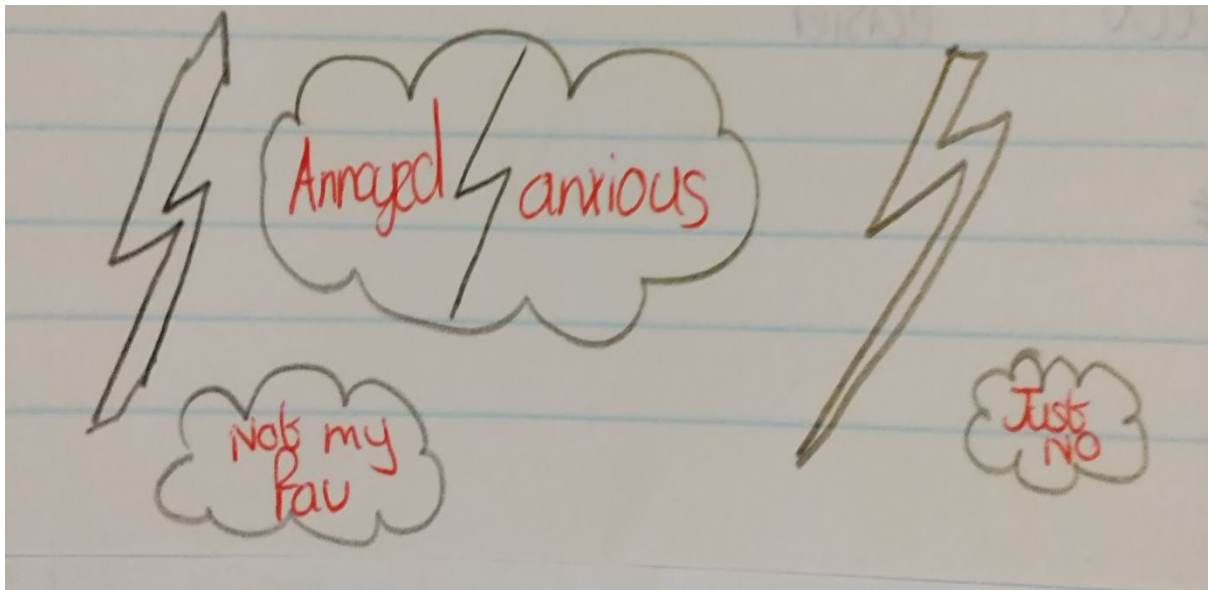 Annoyed anxious
Not my
Fav
Just
NO